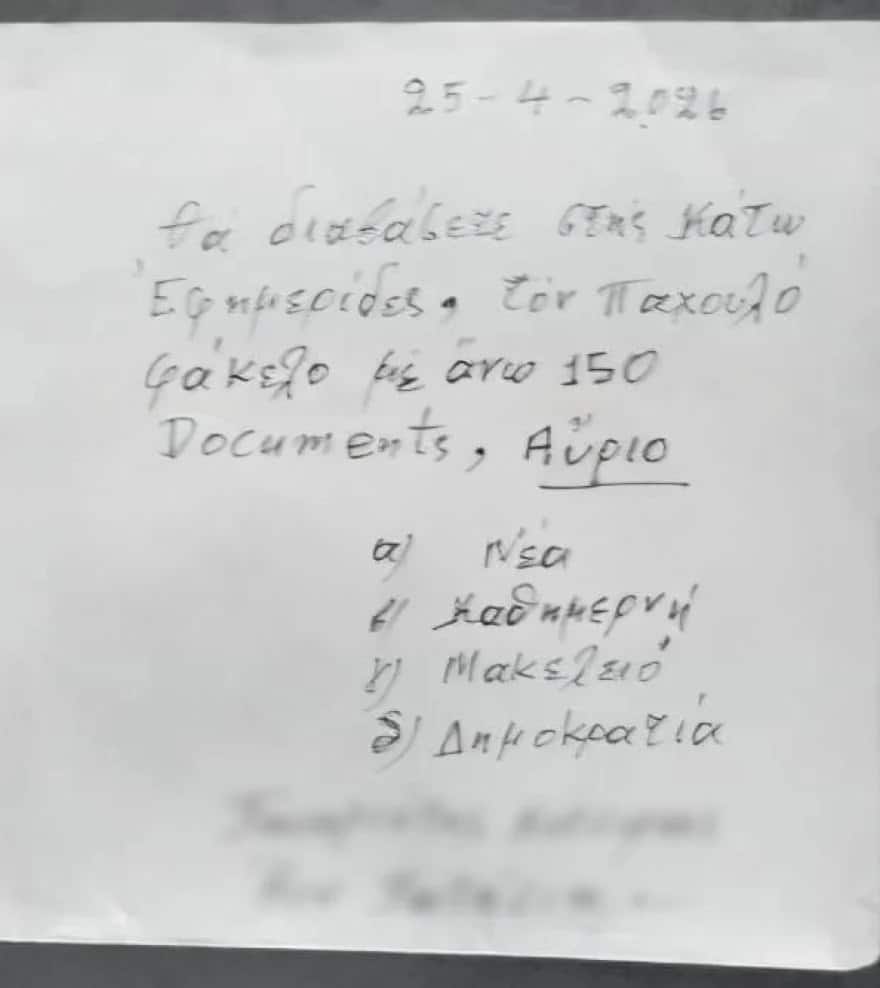 25-4-2026
θά διαβάσετε στής κάτω
Ἐφημερίδες, τόν Παχουλό
φάκελο μέ ἄνω 150
Documents, Αὔριο
α) Νέα
β) Καθημερνή
γ) Μακελειό
δ) Δημοκρατία